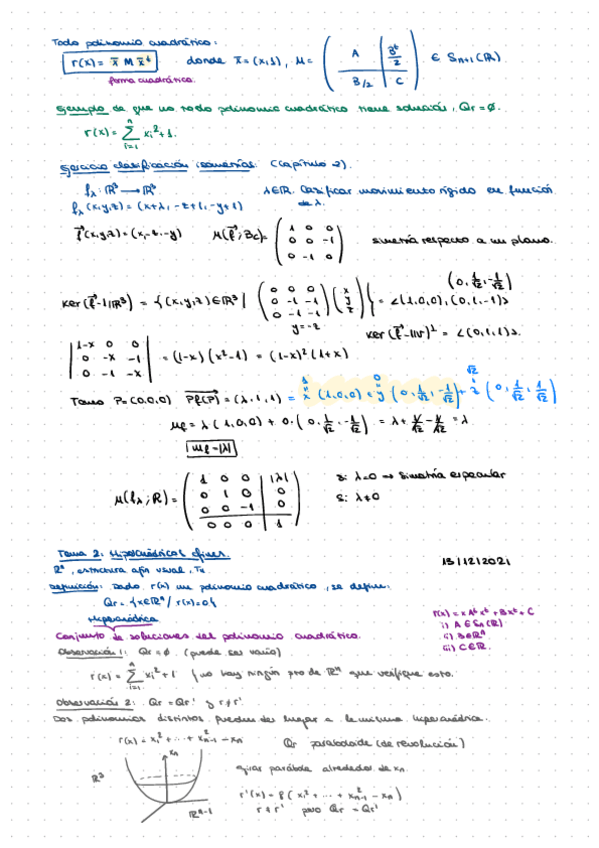 Todo polinomio cuadrático:
r(x) = x̄ M x̄ᵗ donde x̄ = (x,1), M = ( A | Bᵗ/2 ; B/2 | C ) ∈ Sₙ₊₁(ℝ)
forma cuadrática.
Ejemplo de que no todo polinomio cuadrático tiene solución, Qr = ∅.
r(x) = Σᵢ₌₁ⁿ xᵢ² + 1.
Ejercicio clasificación isometrías: (Capítulo 2).
f_λ: ℝ³ → ℝ³ λ∈ℝ. Clasificar movimiento rígido en función de λ.
f_λ(x,y,z) = (x+λ, -z+1, -y+1)
f⃗(x,y,z) = (x,-z,-y) M(f⃗; Bc) = ( 1 0 0 ; 0 0 -1 ; 0 -1 0 ) simetría respecto a un plano.
(0, 1/√2, -1/√2)
Ker(f⃗ - 1ℝ³) = {(x,y,z)∈ℝ³ | ( 0 0 0 ; 0 -1 -1 ; 0 -1 -1 ) ( x ; y ; z ) } = <(1,0,0), (0,1,-1)>
y = -z
Ker(f⃗ - 1)^⊥ = <(0,1,1)>.
| 1-x 0 0 ; 0 -x -1 ; 0 -1 -x | = (1-x)(x²-1) = (1-x)²(1+x)
Tomo P = (0,0,0) Pf(P) = (λ,1,1) = x (1,0,0) + y (0, 1/√2, -1/√2) + z (0, 1/√2, 1/√2)
λ 0 √2
μf = λ(1,0,0) + 0·(0, 1/√2, -1/√2) = λ + 1/√2 - 1/√2 = λ
μf = |λ|
M(f_λ; R) = ( 1 0 0 | |λ| ; 0 1 0 | 0 ; 0 0 -1 | 0 ; 0 0 0 | 1 )
Si λ=0 → Simetría especular
Si λ≠0
Tema 2: Hipercuádricas afines. 13/12/2021
ℝⁿ, estructura afín usual,
Definición: Dado r(x) un polinomio cuadrático, se define:
Qr = {x∈ℝⁿ / r(x)=0}
Hipercuádrica
Conjunto de soluciones del polinomio cuadrático.
r(x) = xAᵗxᵗ + Bxᵗ + C
i) A ∈ Sn(ℝ)
ii) B∈ℝⁿ
iii) C∈ℝ.
Observación 1: Qr = ∅. (puede ser vacío)
r(x) = Σᵢ₌₁ⁿ xᵢ² + 1 {no hay ningún pto de ℝⁿ que verifique esto.
Observación 2: Qr = Qr' y r≠r'
Dos polinomios distintos pueden dar lugar a la misma hipercuádrica.
r(x) = x₁² + ... + x²ₙ₋₁ - xn Qr paraboloide (de revolución)
xn
girar parábola alrededor de xn
ℝ³
r'(x) = 8(x₁² + ... + x²ₙ₋₁ - xn)
ℝⁿ⁻¹
r ≠ r' pero Qr = Qr'